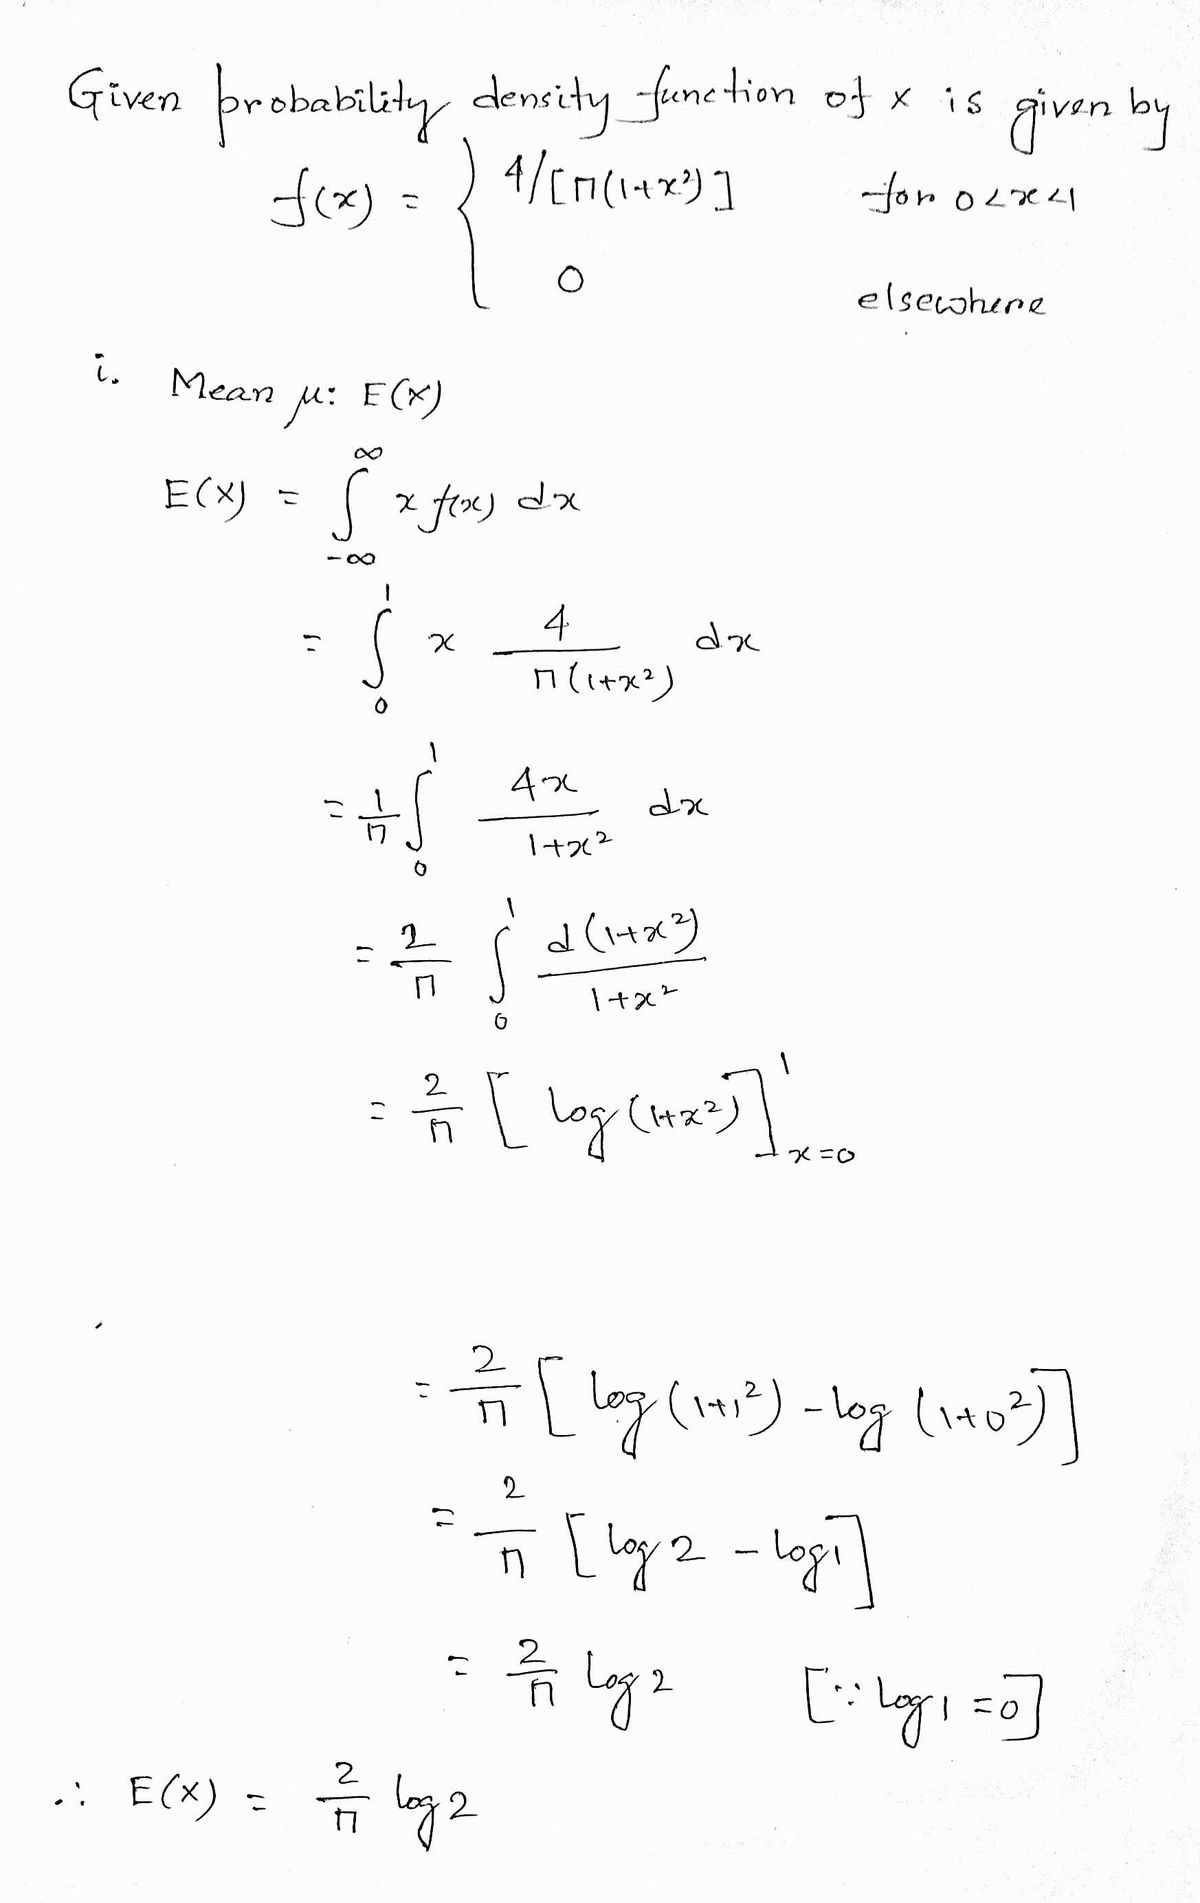 Given probability density function of x is given by
f(x) = { 4/[π(1+x²)] for 0<x<1
0 elsewhere
i. Mean μ: E(X)
E(X) = ∫_{-∞}^{∞} x f(x) dx
= ∫_0^1 x 4/(π(1+x²)) dx
= 1/π ∫_0^1 4x/(1+x²) dx
= 2/π ∫_0^1 d(1+x²)/(1+x²)
= 2/π [log(1+x²)]_{x=0}^1
= 2/π [log(1+1²) - log(1+0²)]
= 2/π [log 2 - log 1]
= 2/π log 2 [∵ log 1 = 0]
∴ E(X) = 2/π log 2